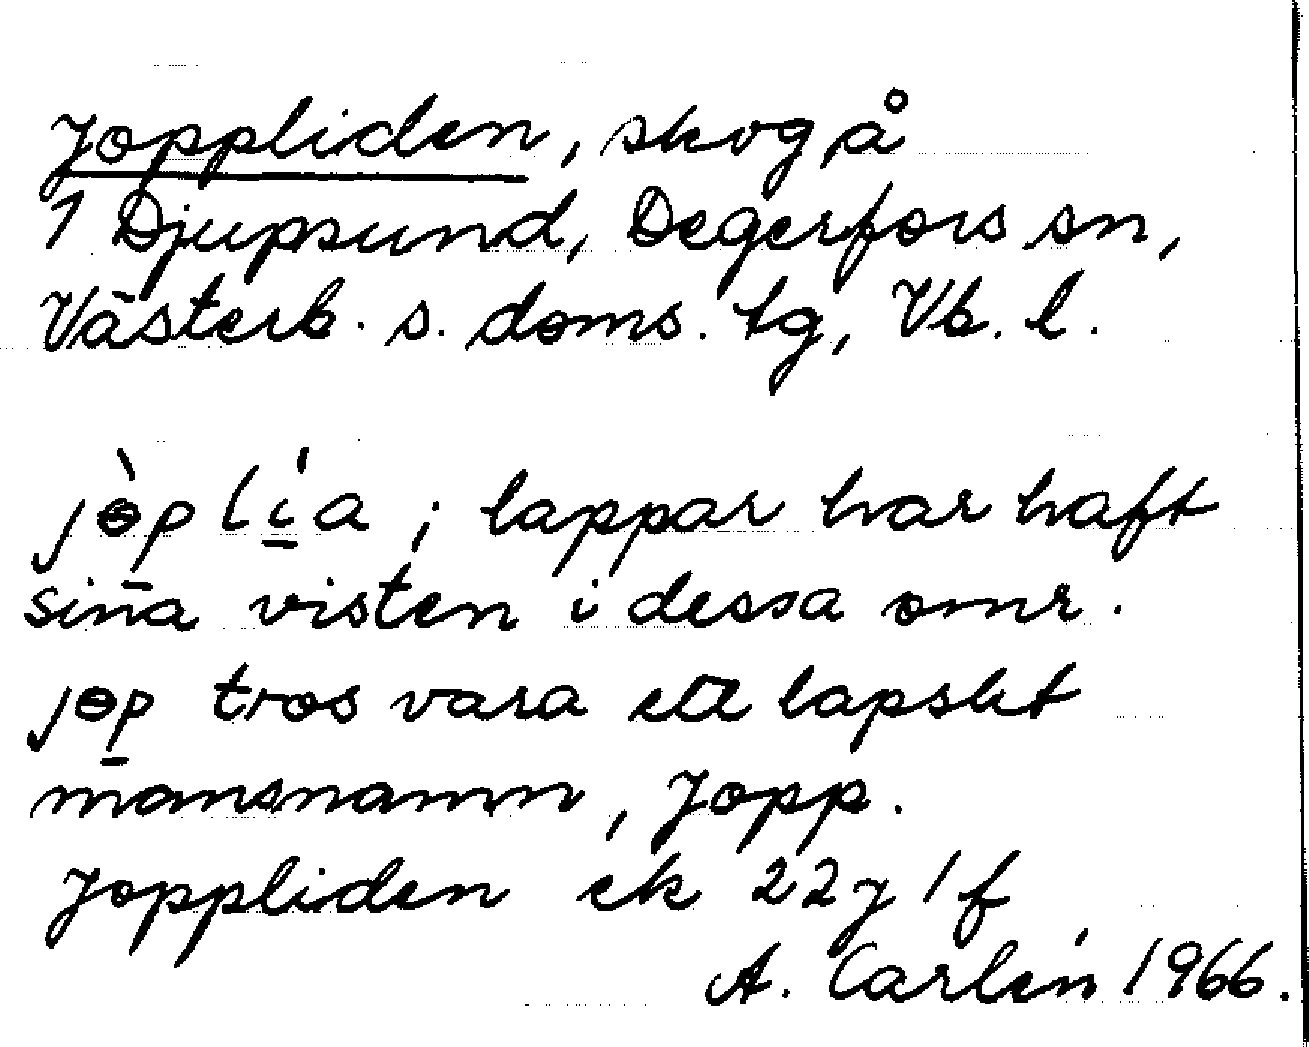 Joppliden, skog å
1 Djupsund, Degerfors sn,
Västerb. s. doms. tg, Vb. l.
jɵ̀p̱lí̱a; lappar har haft
sina visten i dessa omr.
jɵp̱ tros vara ett lapskt
mansnamn, Jopp.
Joppliden ek 22 j 1 f
A. Carlén 1966.